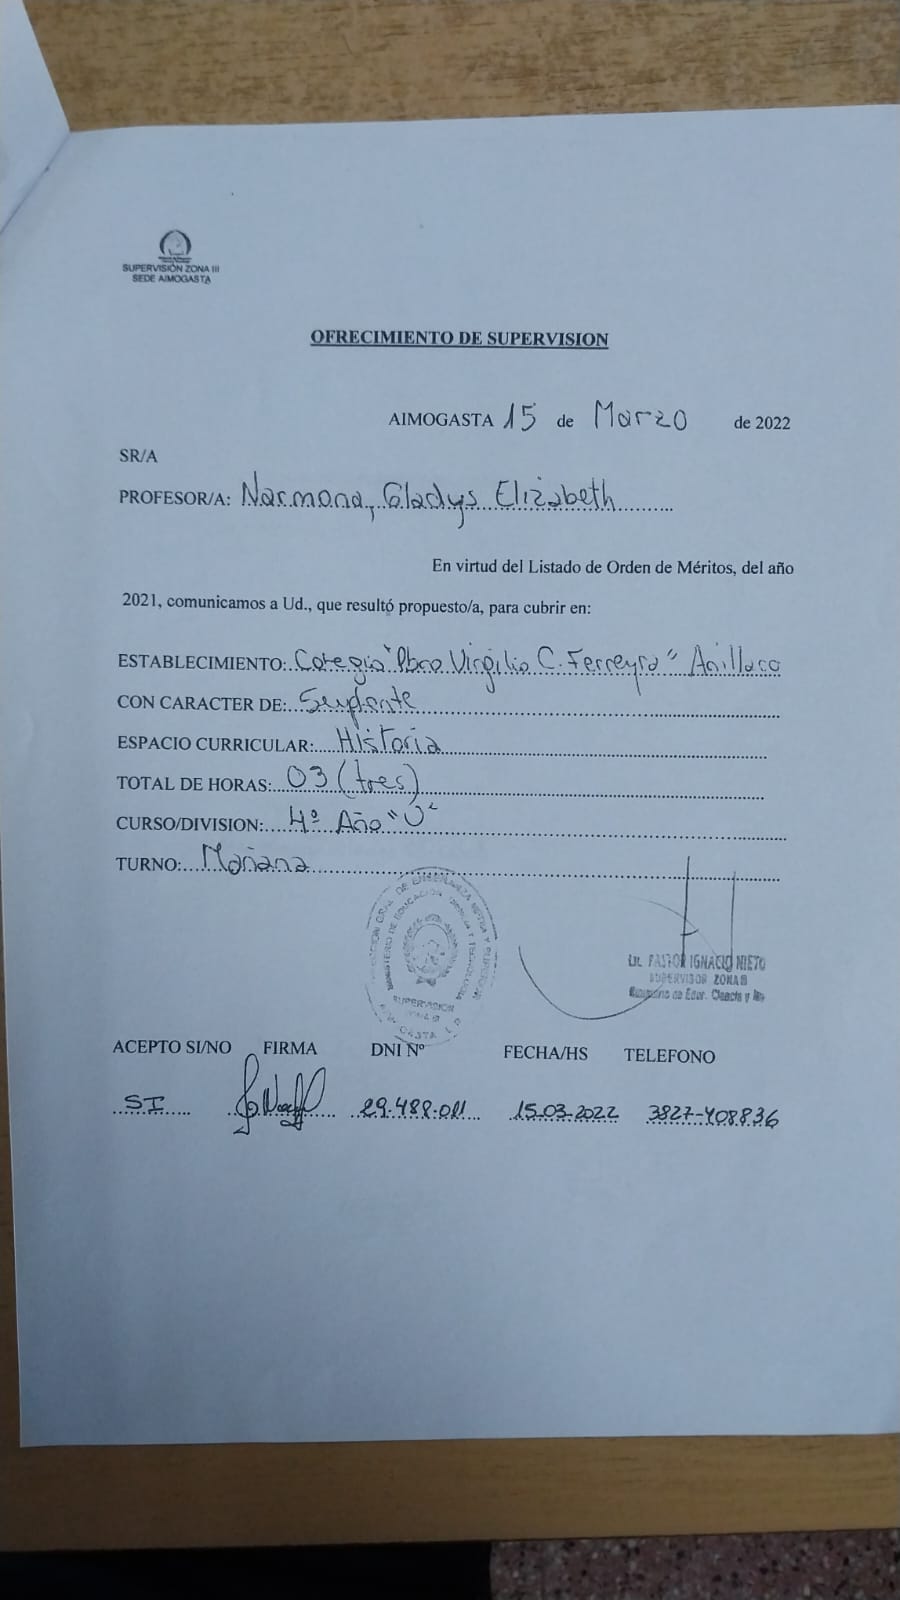 SUPERVISIÓN ZONA III
SEDE AIMOGASTA
OFRECIMIENTO DE SUPERVISION
AIMOGASTA 15 de Marzo de 2022
SR/A
PROFESOR/A: Narmona, Gladys Elizabeth
En virtud del Listado de Orden de Méritos, del año
2021, comunicamos a Ud., que resultó propuesto/a, para cubrir en:
ESTABLECIMIENTO: Colegio "Pbro. Virgilio C. Ferreyra" Anillaco
CON CARACTER DE: Suplente
ESPACIO CURRICULAR: Historia
TOTAL DE HORAS: 03 (tres)
CURSO/DIVISION: 4º Año "U"
TURNO: Mañana
SUPERVISION
LIC. PASTOR IGNACIO NIETO
SUPERVISOR ZONA
ACEPTO SI/NO FIRMA DNI Nº FECHA/HS TELEFONO
SI 29.488.011 15-03-2022 3827-408836